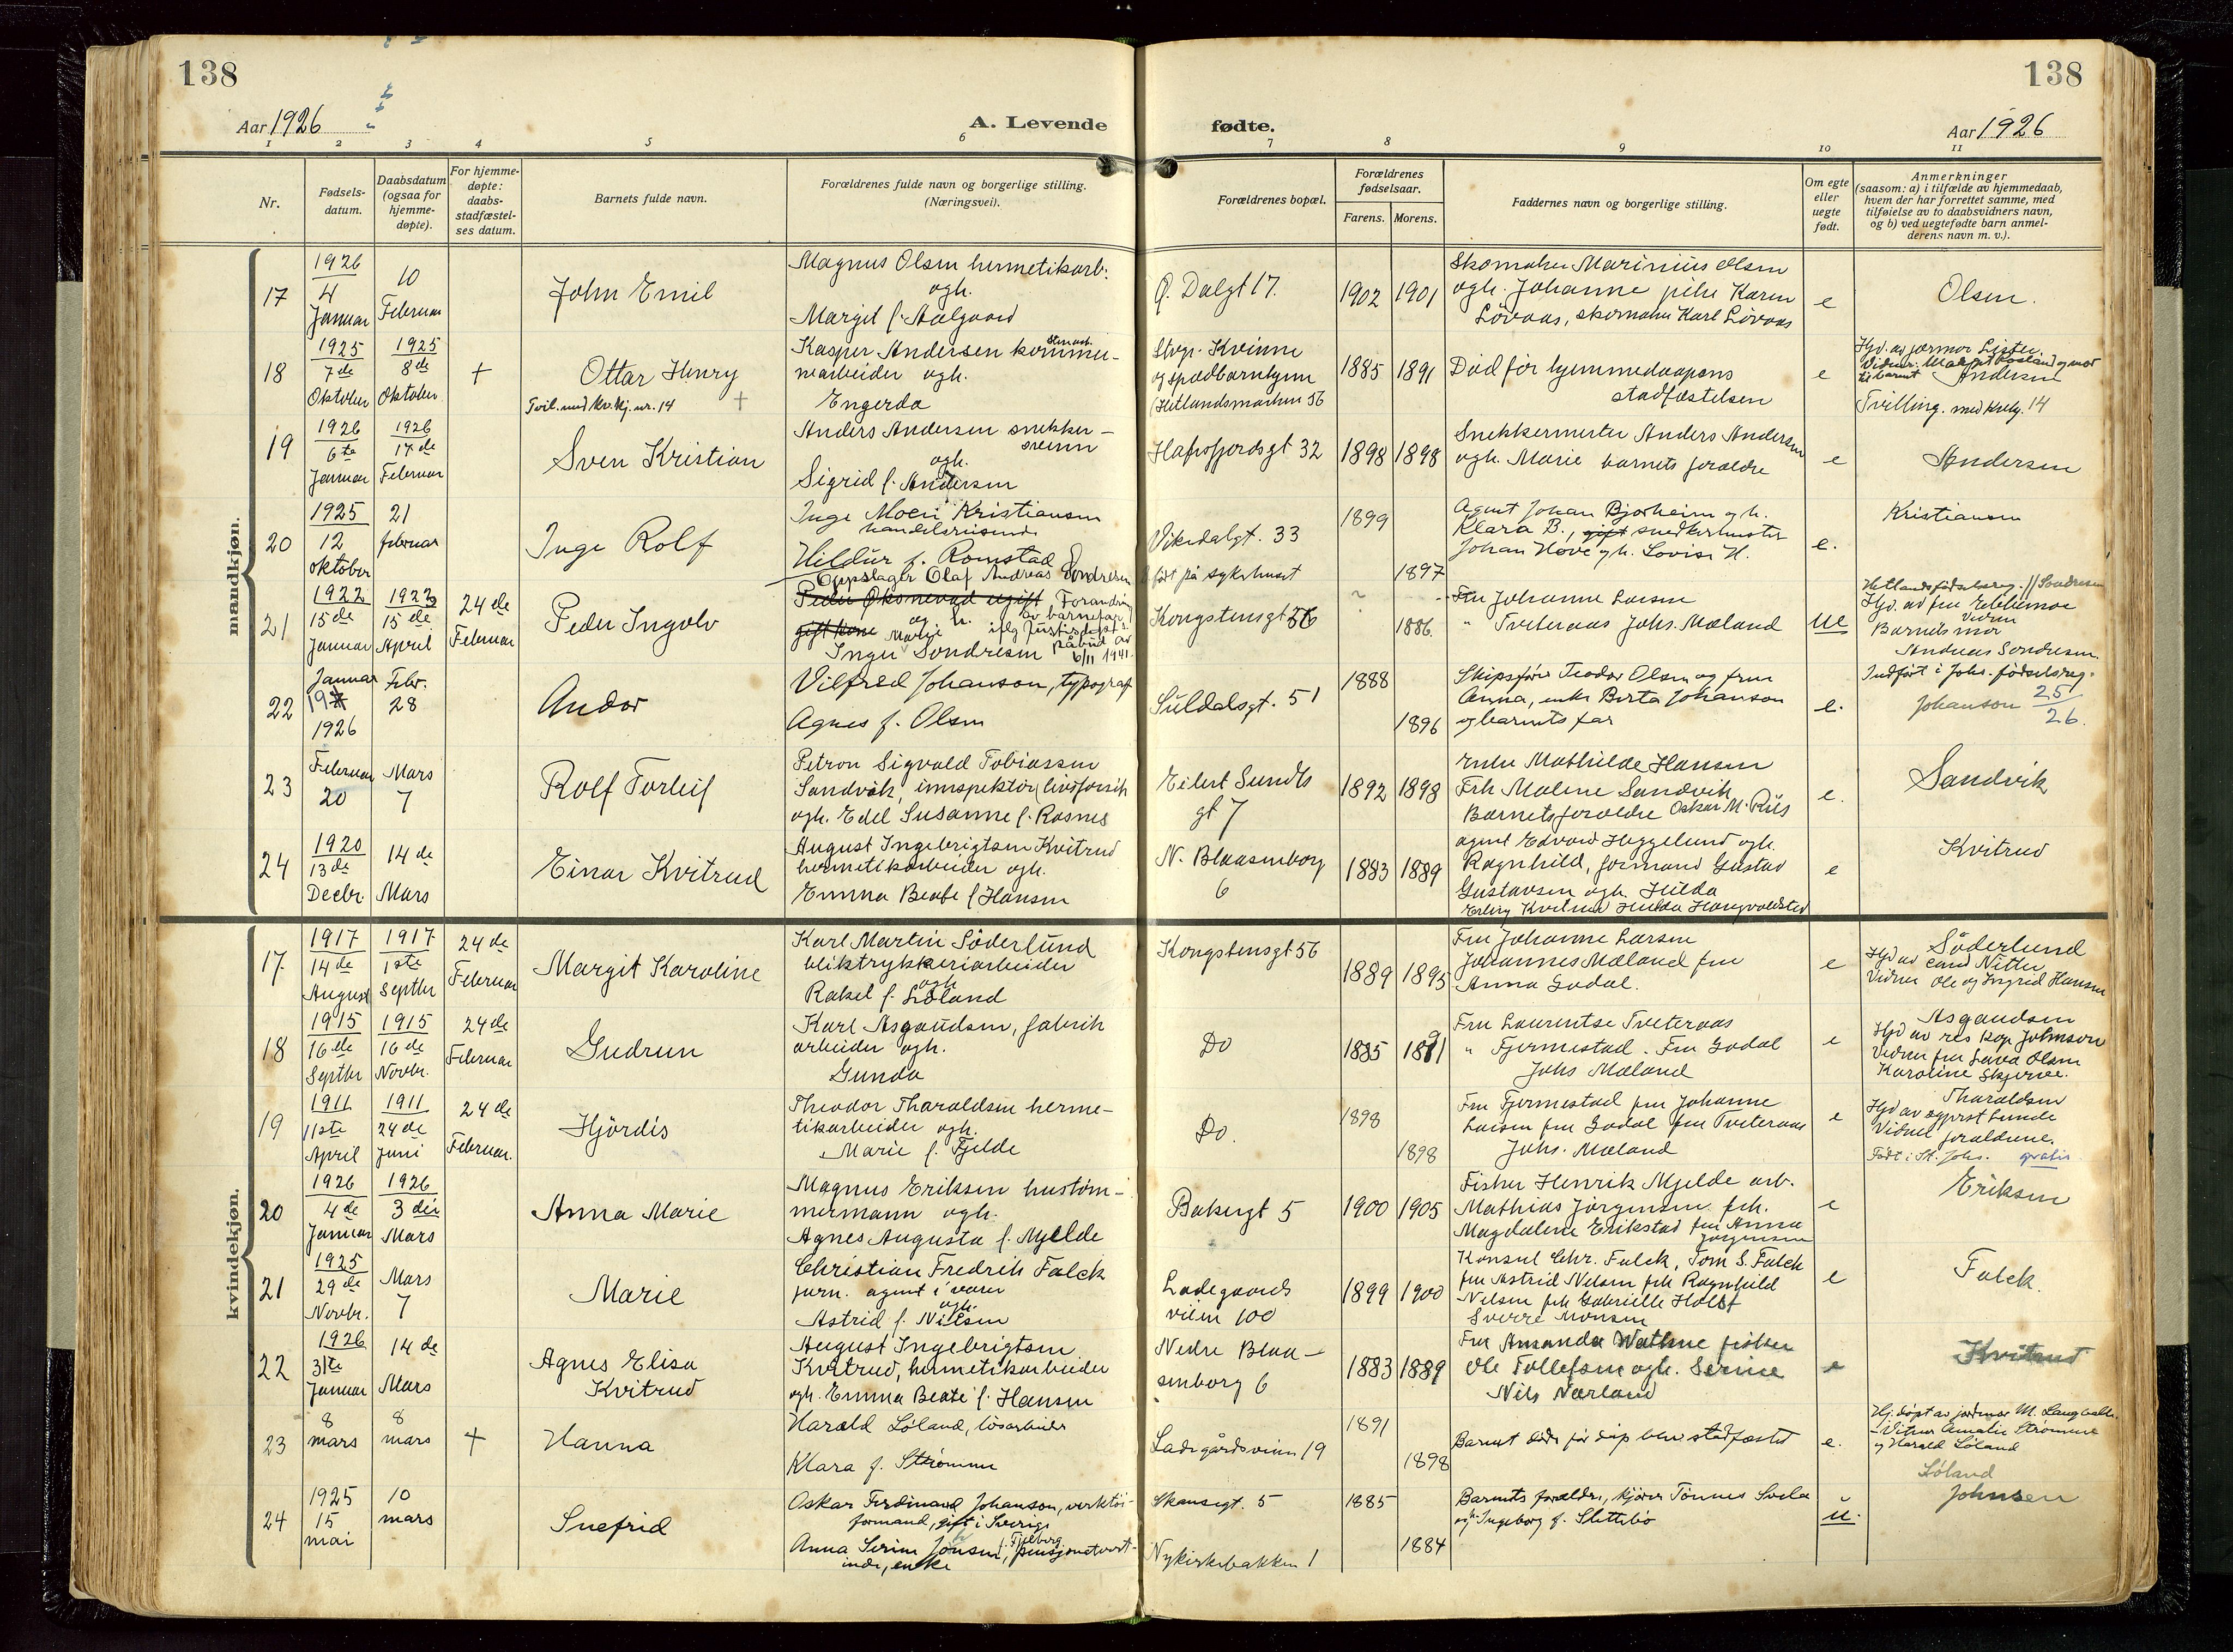 138
138
Aar 1926
A. Levende
fødte.
Aar 1926
1 2 3 4 5 6 7 8 9 10 11
Nr.
Fødsels-
datum.
Daabsdatum
(ogsaa for
hjemme-
døpte).
For hjemme-
døpte:
daabs-
stadfæstel-
ses datum.
Barnets fulde navn.
Forældrenes fulde navn og borgerlige stilling.
(Næringsvei).
Forældrenes bopæl.
Forældrenes
fødselsaar.
Farens. Morens.
Faddernes navn og borgerlige stilling.
Om egte
eller
uegte
født.
Anmerkninger
(saasom: a) i tilfælde av hjemmedaab,
hvem der har forrettet samme, med
tilføielse av to daabsvidners navn,
og b) ved uegtefødte barn anmel-
derens navn m. v.).
mandkjøn.
17
1926
4
Januar
10
Februar
John Emil
Magnus Olsen hermetikarb.
ogh.
Margit f. Aalgaard
Ø. Dalgt 17.
1902 1901
Skomaker Marinius Olsen
ogh. Johanne pike Karen
Løvaas, skomaker Karl Løvaas
e
Olsen.
18
1925
7de
Oktober
1925
8de
Oktober
†
Ottar Henry
Tvil. med kv.kj. nr. 14 †
Kasper Andersen kommu-
nearbeider ogh.
Engerda
Kvinne
og spædbarnhjem
(Hetlandsmarken 56
1885 1891
Død før hjemmedaapens
stadfæstelsen
e
Andersen
Tvilling. med kvkj. 14
19
1926
6te
Januar
1926
17de
Februar
Sven Kristian
Anders Andersen snekker-
svenn
ogh.
Sigrid f. Andersen
Hafrsfjordsgt 32
1898 1898
Snekkermester Anders Andersen
ogh. Marie barnets forældre
e
Andersen
20
1925
12
oktober
21
februar
Inge Rolf
Inge Moen Kristiansen
handelsreisende
Hildur f. Romstad
Vikedalgt. 33
født på sykehuset
1899
1897
Agent Johan Bjorheim og h.
Klara B., gift snedkermester
Johan Hove og h. Lovise H.
e.
Kristiansen
21
1922
15de
Januar
1922
15de
April
24de
Februar
Peder Ingolv
Oppslager Olaf Andreas Sondresen
Peder Øksnevad ugift, Forandring
og h. av barnefar
gift kone Malje iflg Justisdept's
Inger Sondresen påbud av
6/11 1941.
Kongstensgt 56
1886.
Fru Johanne Larsen
" Tveteraas Johs. Mæland
ue
Hetlands fødselsreg. // Sondresen
Hjd. av fru
Vidner
Barnets mor
Andreas Sondresen.
22
Januar
19
1926
Febr.
28
Andor
Vilfred Johanson, typograf
Agnes f. Olsen
Suldalsgt. 51
1888
1896
Skipsfører Teodor Olsen og frue
Anna, enke Berta Johanson
og barnets far
e.
Indført i Johs. fødselsreg.
Johanson 25/26.
23
Februar
20
Mars
7
Rolf Torleif
Petron Sigvald Tobiassen
Sandvik, innspektør livsforsik
ogh. Edel Susanne f. Rosnes
Eilert Sundts
gt 7
1892 1898
Enke Mathilde Hansen
Frk Malene Sandvik
Barnets forældre Oskar M. Riis
e.
Sandvik
24
1920
13de
Decbr.
14de
Mars
Einar Kvitrud
August Ingebrigtsen Kvitrud
hermetikarbeider ogh.
Emma Beate f Hansen
N. Blaasenborg
6
1883 1889
agent Edvard Heggelund ogh.
Ragnhild, formand Gustav
Gustavsen ogh Hilda
Erling Kvitrud Hulda Haugvaldstad
e
Kvitrud
kvindekjøn.
17.
1917
14de
August
1917
1ste
Septbr
24de
Februar
Margit Karoline
Karl Martin Söderlund
bliktrykkeriarbeider
ogh
Rakel f. Løland
Kongstensgt 56
1889 1895
Fru Johanne Larsen
Johannes Mæland fru
Anna Godal.
e
Söderlund
Hjd av cand Nitter
Vidner Ole og Ingrid Hansen
18
1915
16de
Septbr
1915
16de
Novbr.
24de
Februar
Gudrun
Karl Asgautsen, fabrik
arbeider ogh.
Gunda
Do
1885 1891
Fru Laurentse Tveteraas
" Fjermestad. Fru Godal
Johs Mæland
e
Asgautsen
Hjd av res kap Johnson
Vidner fru Lava Olsen
Karoline Skjerven.
19
1911
11ste
April
1911
24de
Juni
24de
Februar.
Hjördis
Theodor Tharaldsen herme-
tikarbeider ogh.
Marie f. Fjelde
Do.
1898
1898
Fru Fjermestad fru Johanne
Larsen fru Godal fru Tveteraas
Johs. Mæland
e
Tharaldsen
Hjd av sogprst Lunde
Vidner forældrene.
Født i St. Johs. gratis
20
1926
4de
Januar
1926
3die
Mars
Anna Marie
Magnus Eriksen hustøm-
mermann ogh.
Agnes Augusta f. Mjelde
Bakergt 5
1900 1905
Fisker Henrik Mjelde arb.
Mathias Jörgensen frk.
Magdalene Erikstad fru Anna
Jörgensen
e
Eriksen
21
1925
29de
Novbr.
Mars
7
Marie
Christian Fredrik Falck
forr. agent i varer
ogh.
Astrid f. Nilsen
Ladegaards
veien 100
1899 1900
Konsul Chr. Falck, Tom S. Falck
fru Astrid Nelsen frk Ragnhild
Nelsen frk Gabrielle Holst
Sverre Monsen
e
Falck.
22
1926
31te
Januar
14de
Mars
Agnes Elisa
Kvitrud
August Ingebrigtsen
Kvitrud, hermetikarbeider
ogh. Emma Beate f. Hansen
Nedre Blaa-
senborg 6
1883 1889
Fru Amanda Wathne fisker
Ole Tollefsen ogh. Serine
Nils Nærland
e
Kvitrud
23
8
mars
8
mars
†
Hanna
Harald Løland, løsarbeider
Klara f. Strømme
Ladegårdsveien 19
1891
1898
Barnet døde før dåp blev stadfæstet
e.
Hj. døpt av jordmor M.
Vitner Amalie Strømme
og Harald Løland
Løland
24
1925
15
mai
10
mars
Snefrid
Oskar Ferdinand Johanson, verktøi-
formand, gift i Sverige
Anna Serine Jonsen, f. Fjelberg, pensjonatvert-
inde, enke
Skansegt. 5
Nykirkebakken 1
1885
1884
Barnets forældre, kjører Tønnes Svela
og h. Ingeborg f. Slettebø
u.
Johnsen